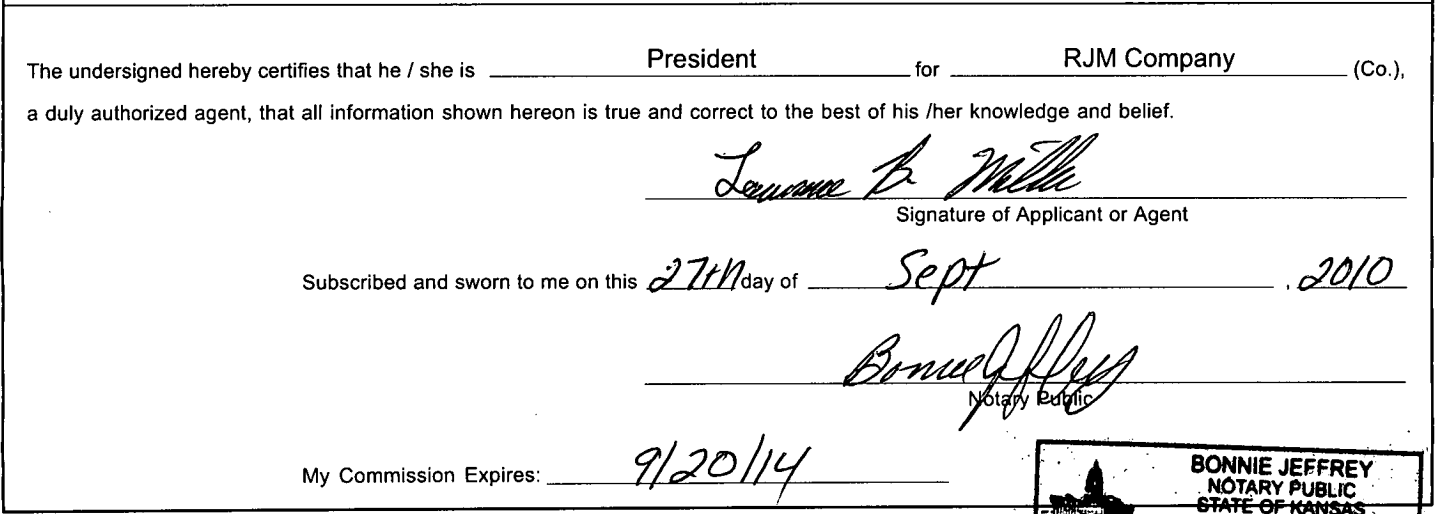 The undersigned hereby certifies that he / she is President for RJM Company (Co.),
a duly authorized agent, that all information shown hereon is true and correct to the best of his /her knowledge and belief.
Lawrence B. Miller
Signature of Applicant or Agent
Subscribed and sworn to me on this 27th day of Sept , 2010
Bonnie Jeffrey
Notary Public
My Commission Expires: 9/20/14
BONNIE JEFFREY
NOTARY PUBLIC
STATE OF KANSAS